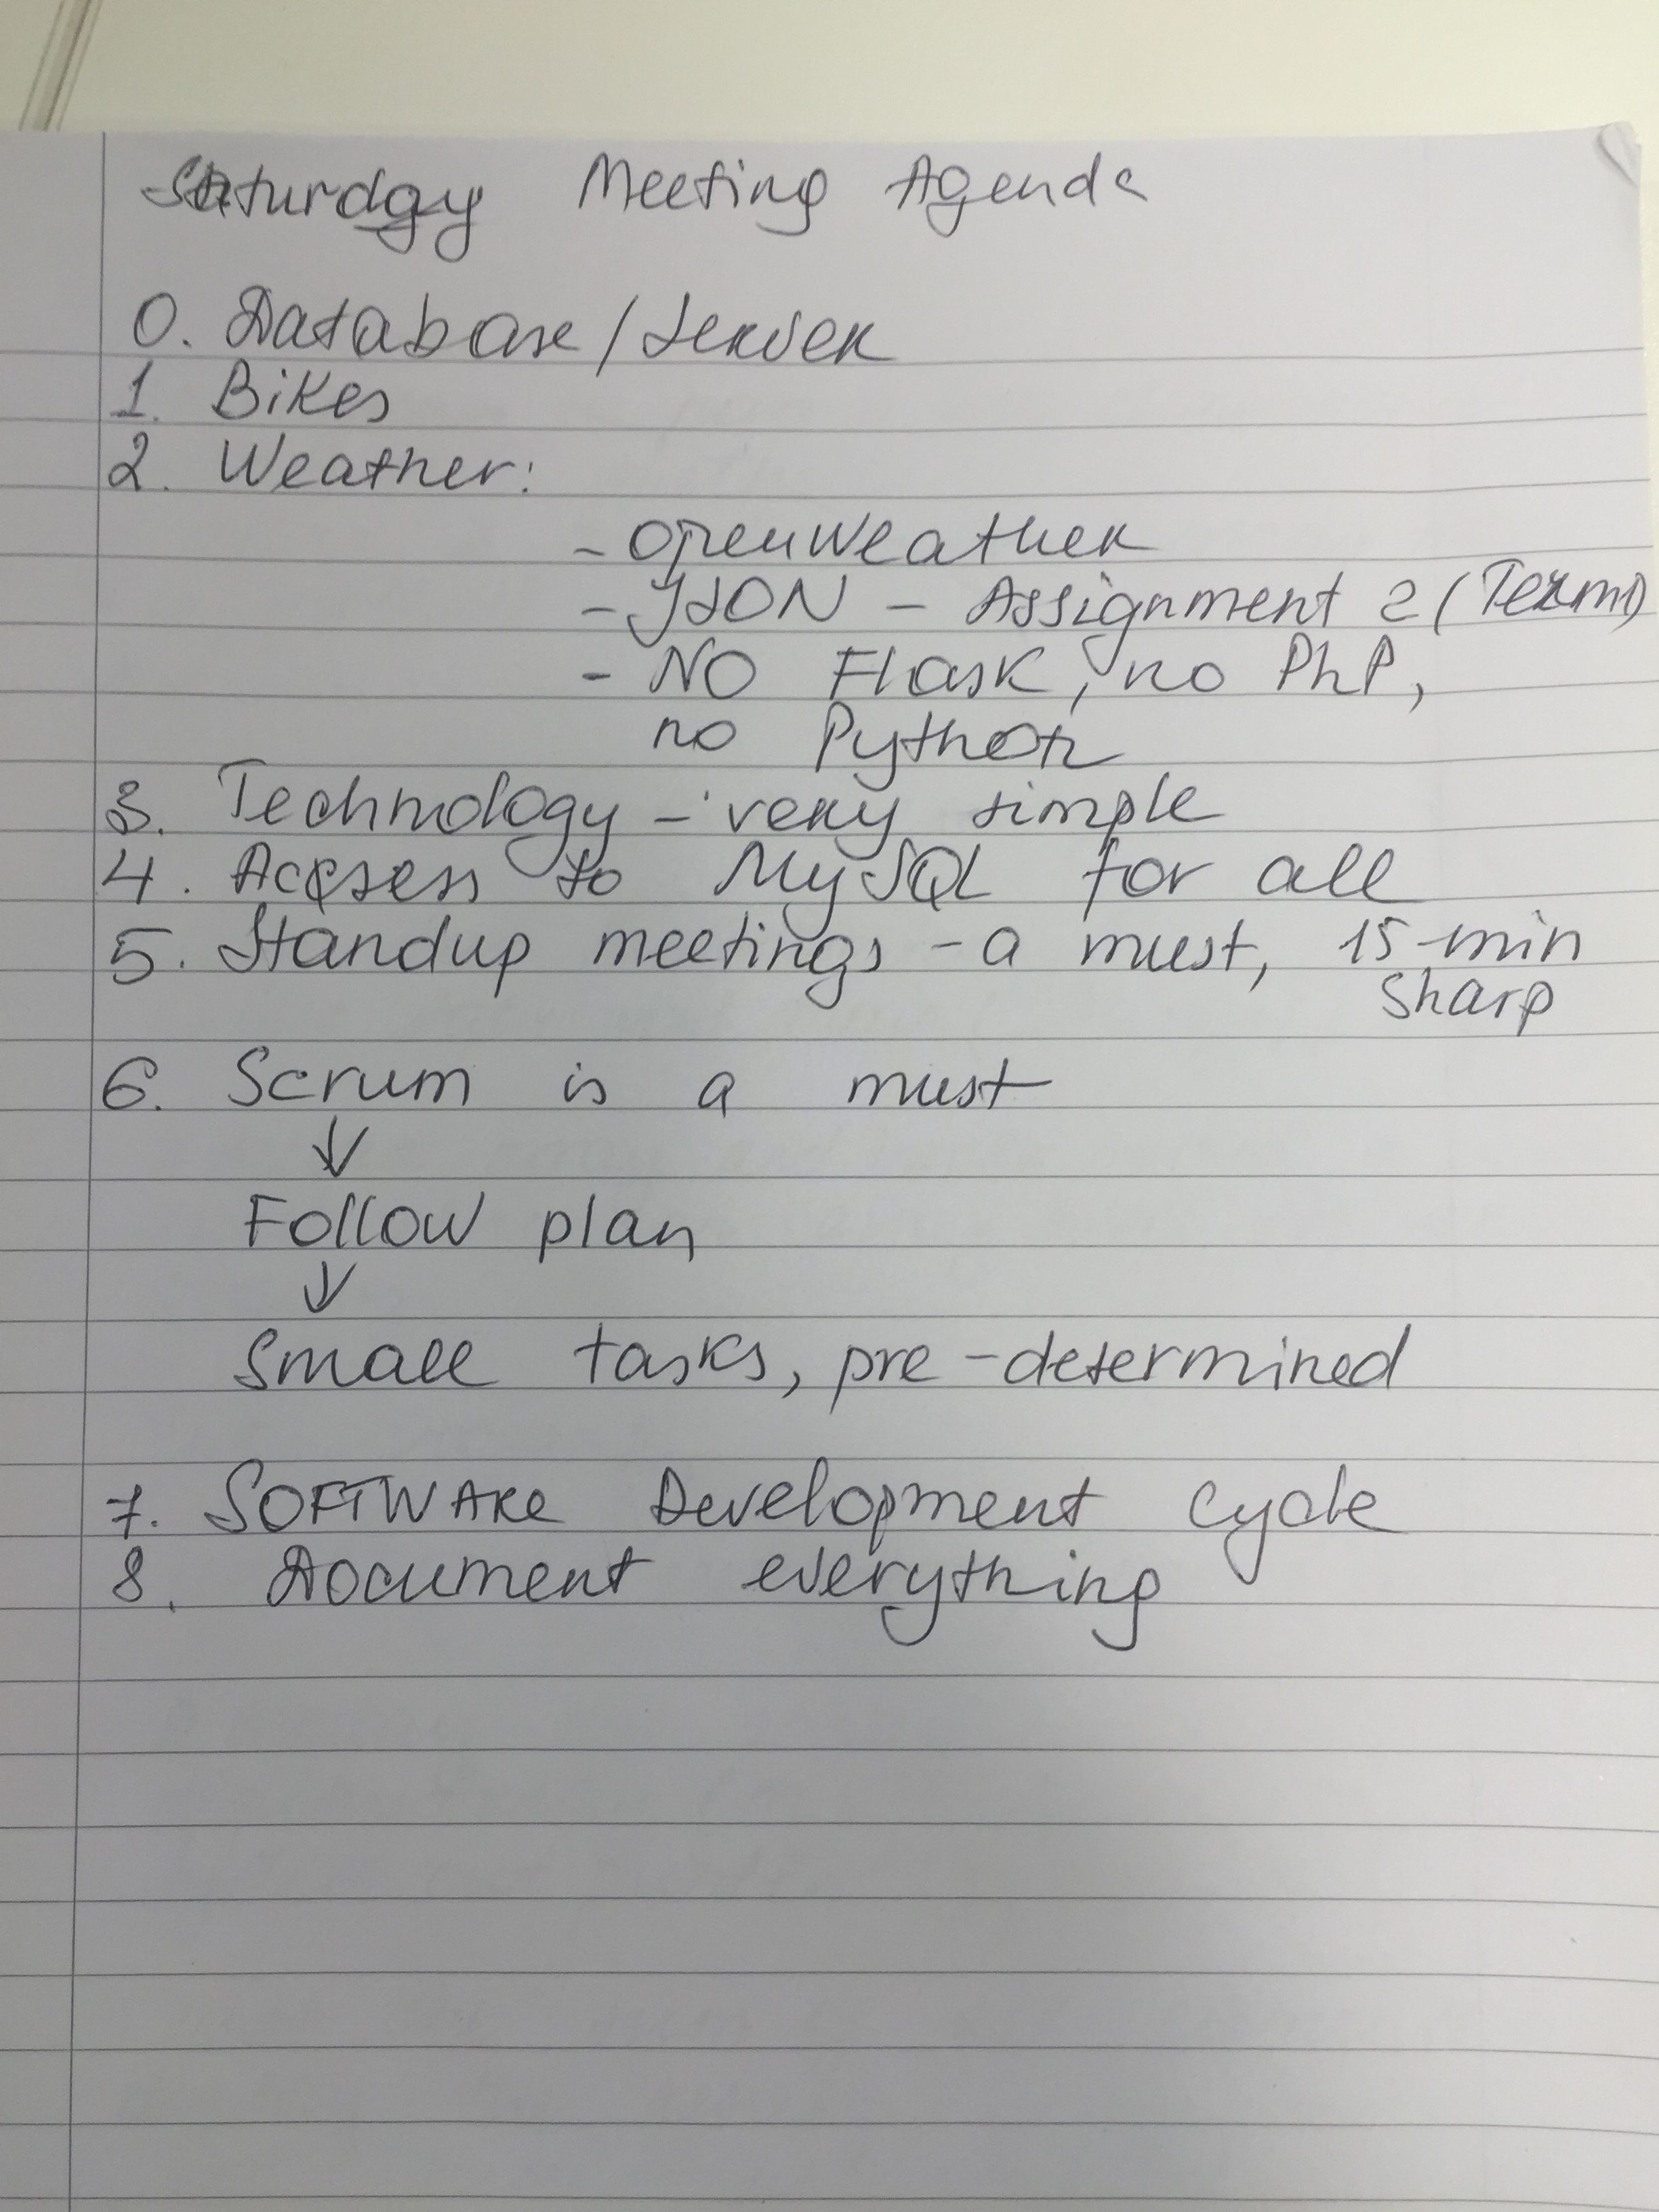 Saturday Meeting Agenda
0. Database / Server
1. Bikes
2. Weather:
- OpenWeather
- JSON - Assignment 2 (Term1)
- NO Flask, no PhP,
no Python
3. Technology - very simple
4. Access to MySQL for all
5. Standup meetings - a must, 15-min
sharp
6. Scrum is a must
↓
Follow plan
↓
Small tasks, pre-determined
7. SOFTWARE Development Cycle
8. Document everything